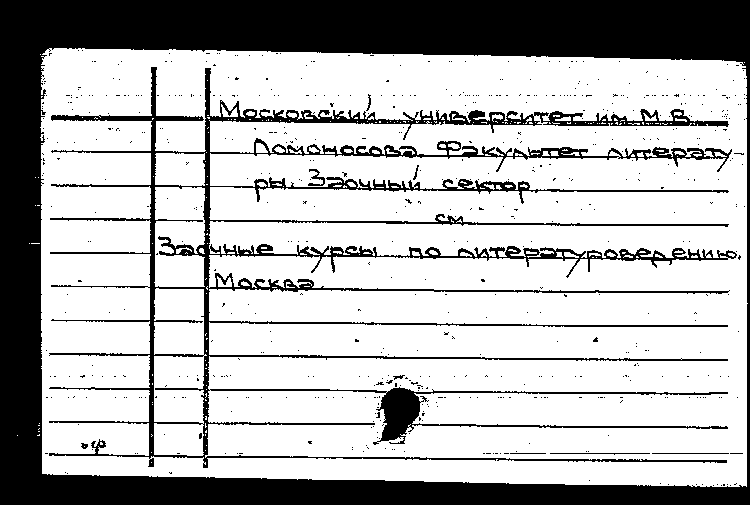 Московский университет им. М.В.
Ломоносова. Факультет литерату
ры. Заочный сектор.
см
Заочные курсы по литературоведению.
Москва